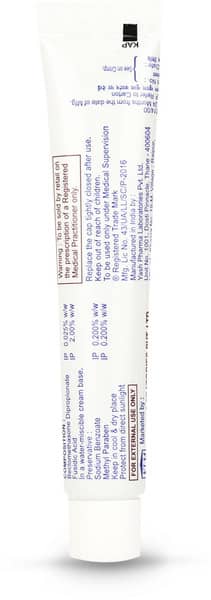 Beclomethasone Dipropionate IP 0.025% w/w
Fusidic Acid IP 2.00% w/w
In a water-miscible cream base.
Preservative :
Sodium Benzoate IP 0.200% w/w
Methyl Paraben IP 0.200% w/w
Keep in cool & dry place
Protect from direct sunlight
FOR EXTERNAL USE ONLY
Marketed by :
Warning : To be sold by retail on
the prescription of a Registered
Medical Practitioner only.
Replace the cap tightly closed after use.
Keep out of reach of children.
To be used only under Medical Supervision
® Registered Trade Mark
Mfg. Lic No. 43/UA/LL/SC/P-2016
Manufactured in India by :
Yash Pharma Laboratories Pvt. Ltd.
Months from the date of Mfg.
Refer to Carton
KAP